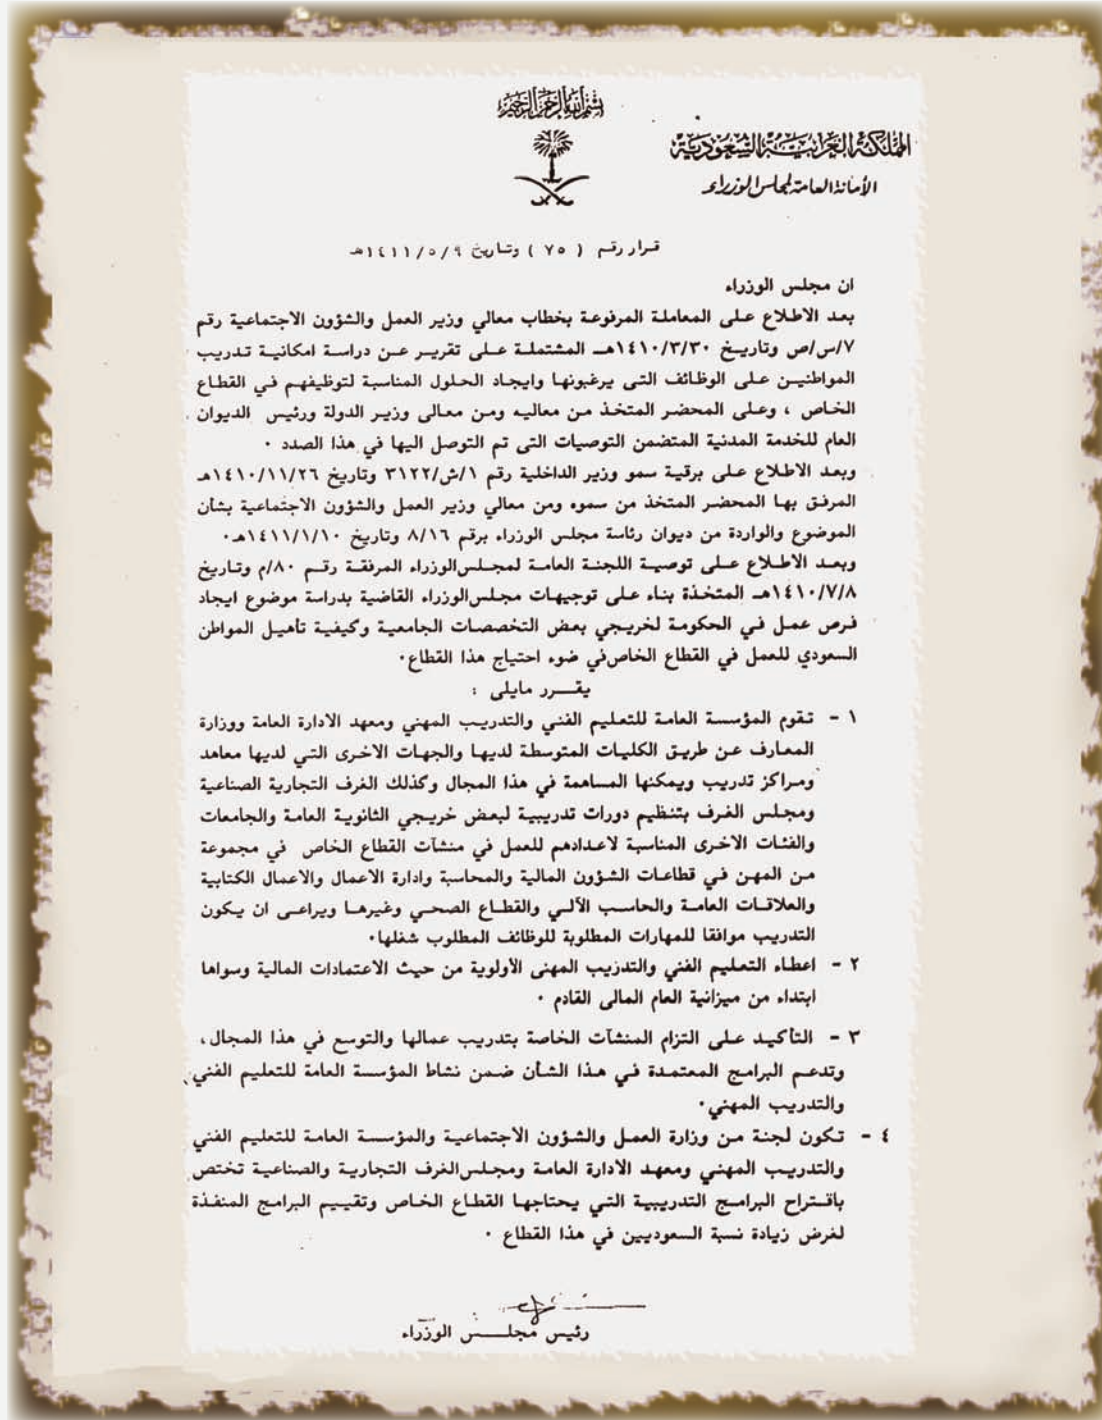 بسم الله الرحمن الرحيم
المملكة العربية السعودية
الأمانة العامة لمجلس الوزراء
قرار رقم ( ٧٥ ) وتاريخ ١٤١١/٥/٩هـ
ان مجلس الوزراء
بعد الاطلاع على المعاملة المرفوعة بخطاب معالي وزير العمل والشؤون الاجتماعية رقم
٧/س/ص وتاريخ ١٤١٠/٣/٣٠هـ المشتملة على تقرير عن دراسة امكانية تدريب
المواطنين على الوظائف التى يرغبونها وايجاد الحلول المناسبة لتوظيفهم في القطاع
الخاص ، وعلى المحضر المتخذ من معاليه ومن معالى وزير الدولة ورئيس الديوان
العام للخدمة المدنية المتضمن التوصيات التى تم التوصل اليها في هذا الصدد ٠
وبعد الاطلاع على برقية سمو وزير الداخلية رقم ١/ش/٣١٢٢ وتاريخ ١٤١٠/١١/٢٦هـ
المرفق بها المحضر المتخذ من سموه ومن معالي وزير العمل والشؤون الاجتماعية بشأن
الموضوع والواردة من ديوان رئاسة مجلس الوزراء برقم ٨/١٦ وتاريخ ١٤١١/١/١٠هـ٠
وبعد الاطلاع على توصية اللجنة العامة لمجلس الوزراء المرفقة رقم ٨٠/م وتاريخ
١٤١٠/٧/٨هـ المتخذة بناء على توجيهات مجلس الوزراء القاضية بدراسة موضوع ايجاد
فرص عمل في الحكومة لخريجي بعض التخصصات الجامعية وكيفية تأهيل المواطن
السعودي للعمل في القطاع الخاص في ضوء احتياج هذا القطاع٠
يقرر مايلى :
١ - تقوم المؤسسة العامة للتعليم الفني والتدريب المهني ومعهد الادارة العامة ووزارة
المعارف عن طريق الكليات المتوسطة لديها والجهات الاخرى التي لديها معاهد
ومراكز تدريب ويمكنها المساهمة في هذا المجال وكذلك الغرف التجارية الصناعية
ومجلس الغرف بتنظيم دورات تدريبية لبعض خريجي الثانوية العامة والجامعات
والفئات الاخرى المناسبة لاعدادهم للعمل في منشآت القطاع الخاص في مجموعة
من المهن في قطاعات الشؤون المالية والمحاسبة وادارة الاعمال والاعمال الكتابية
والعلاقات العامة والحاسب الآلي والقطاع الصحي وغيرها ويراعى ان يكون
التدريب موافقا للمهارات المطلوبة للوظائف المطلوب شغلها٠
٢ - اعطاء التعليم الفني والتدريب المهنى الأولوية من حيث الاعتمادات المالية وسواها
ابتداء من ميزانية العام المالى القادم ٠
٣ - التأكيد على التزام المنشآت الخاصة بتدريب عمالها والتوسع في هذا المجال،
وتدعم البرامج المعتمدة في هذا الشأن ضمن نشاط المؤسسة العامة للتعليم الفني
والتدريب المهني٠
٤ - تكون لجنة من وزارة العمل والشؤون الاجتماعية والمؤسسة العامة للتعليم الفني
والتدريب المهني ومعهد الادارة العامة ومجلس الغرف التجارية والصناعية تختص
باقتراح البرامج التدريبية التي يحتاجها القطاع الخاص وتقييم البرامج المنفذة
لغرض زيادة نسبة السعوديين في هذا القطاع ٠
رئيس مجلس الوزراء